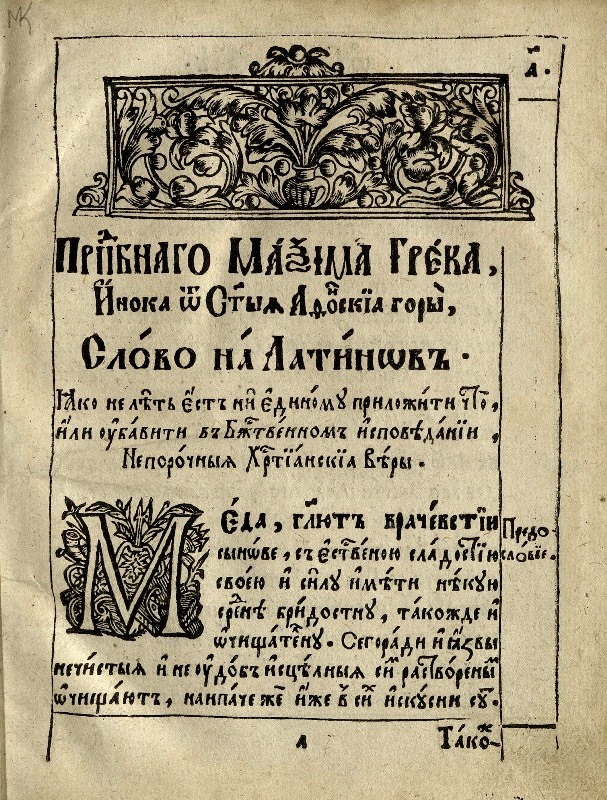 МК
л҃.
Прпⷣбнаго Маѯіма Грека,
И҆нока ѿ Ст҃ыѧ Аѳѡнскіѧ горы̀,
Сло́во на́ Лати́нѡвъ.
Ꙗ҆ко не лѣ́ть є҆́стъ ни є҆ди́ному приложи́ти что̀,
и҆́ли ᲂу҆ба́вити въ Бжⷭ҇тве́нномъ и҆сповѣ́данїи,
Непоро́чныѧ Хрⷭ҇тїа́нскїѧ Вѣ́ры.
МЕ́да, гл҃ютъ врачевстїи
сы́нѡве, съ є҆стⷭ҇веною сла́достїю
свое́ю и҆ си́лу и҆мѣ́ти нѣ́кую
бри́достну, та́кожде и҆
ѡ҆чища́телну. Сегора́ди и҆ ꙗ҆́звы
нечи́стыѧ и҆ не ᲂу҆до́бь и҆сцѣ́лныѧ си́мъ раство́ренымъ
ѡ҆чища́ютъ, наипа́че же и҆̀же въ си́хъ и҆ску́сни сꙋ́.
Предо-
сло́вїе.
а
Та́кож-